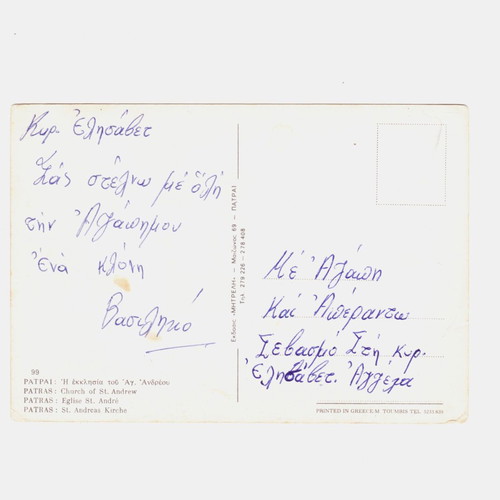 Κυρ. Ἐλησάβετ
Σάς στέλνω μέ ὅλη
τήν Ἀγάπημου
ἕνα κλόνη
Βασιληκό
99
ΠΑΤΡΑΙ: Ἡ ἐκκλησία τοῦ Ἁγ. Ἀνδρέου
PATRAS: Church of St. Andrew
PATRAS: Eglise St. André
PATRAS: St. Andreas Kirche
Ἐκδοσις «ΜΗΤΡΕΛΗ» - Μαιζῶνος 69 - ΠΑΤΡΑΙ
Τηλ. 279 226 - 278 408
Μέ Ἀγάπη
Καί Ἀπέραντω
Σεβασμο Στή κυρ.
Ἐλησάβετ. Ἀγγέλα
PRINTED IN GREECE/M. TOUMBIS TEL.